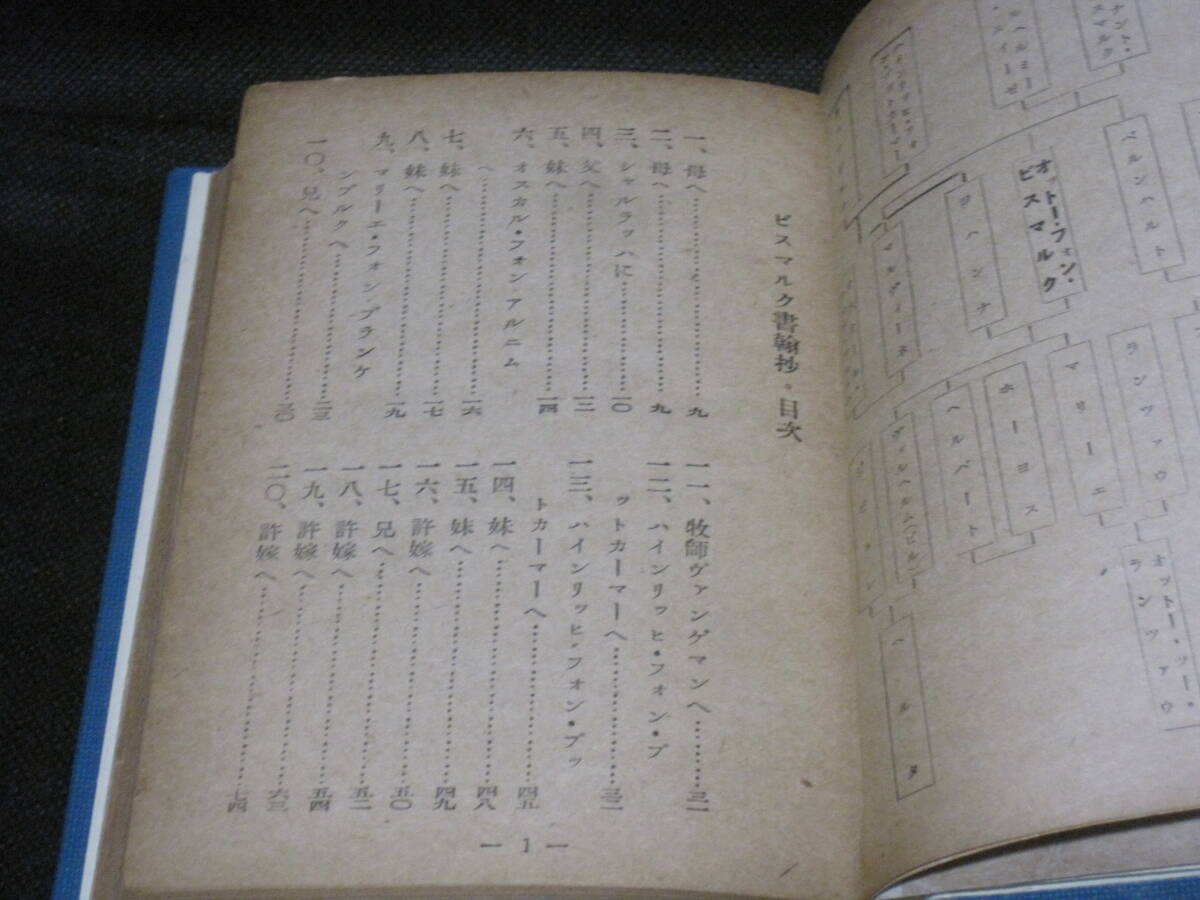 ナント・
スマルク
オットー・フォン・
ビスマルク
ベルンハルト
ヨハンナ
マルヴィーネ
ランツァウ
マリーエ
ホーヨス
ヘルバート
オットー・ツー・
ランツァウ
ヘルタ
ビスマルク書翰抄・目次
一、母へ……………九
二、母へ……………九
三、シャルラッハに……………一〇
四、父へ……………一二
五、妹へ……………一四
六、オスカル・フォン・アルニム
へ……………一六
七、妹へ……………一七
八、妹へ……………一九
九、マリーエ・フォン・ブランケ
ンブルクへ……………二三
一〇、兄へ……………三〇
一一、牧師ヴァンゲマンへ……………三一
一二、ハインリッヒ・フォン・プ
ットカーマーへ……………三二
一三、ハインリッヒ・フォン・プッ
トカーマーへ……………四五
一四、妹へ……………四八
一五、妹へ……………四九
一六、許嫁へ……………五〇
一七、兄へ……………五二
一八、許嫁へ……………五四
一九、許嫁へ……………六三
二〇、許嫁へ……………七四
— 1 —